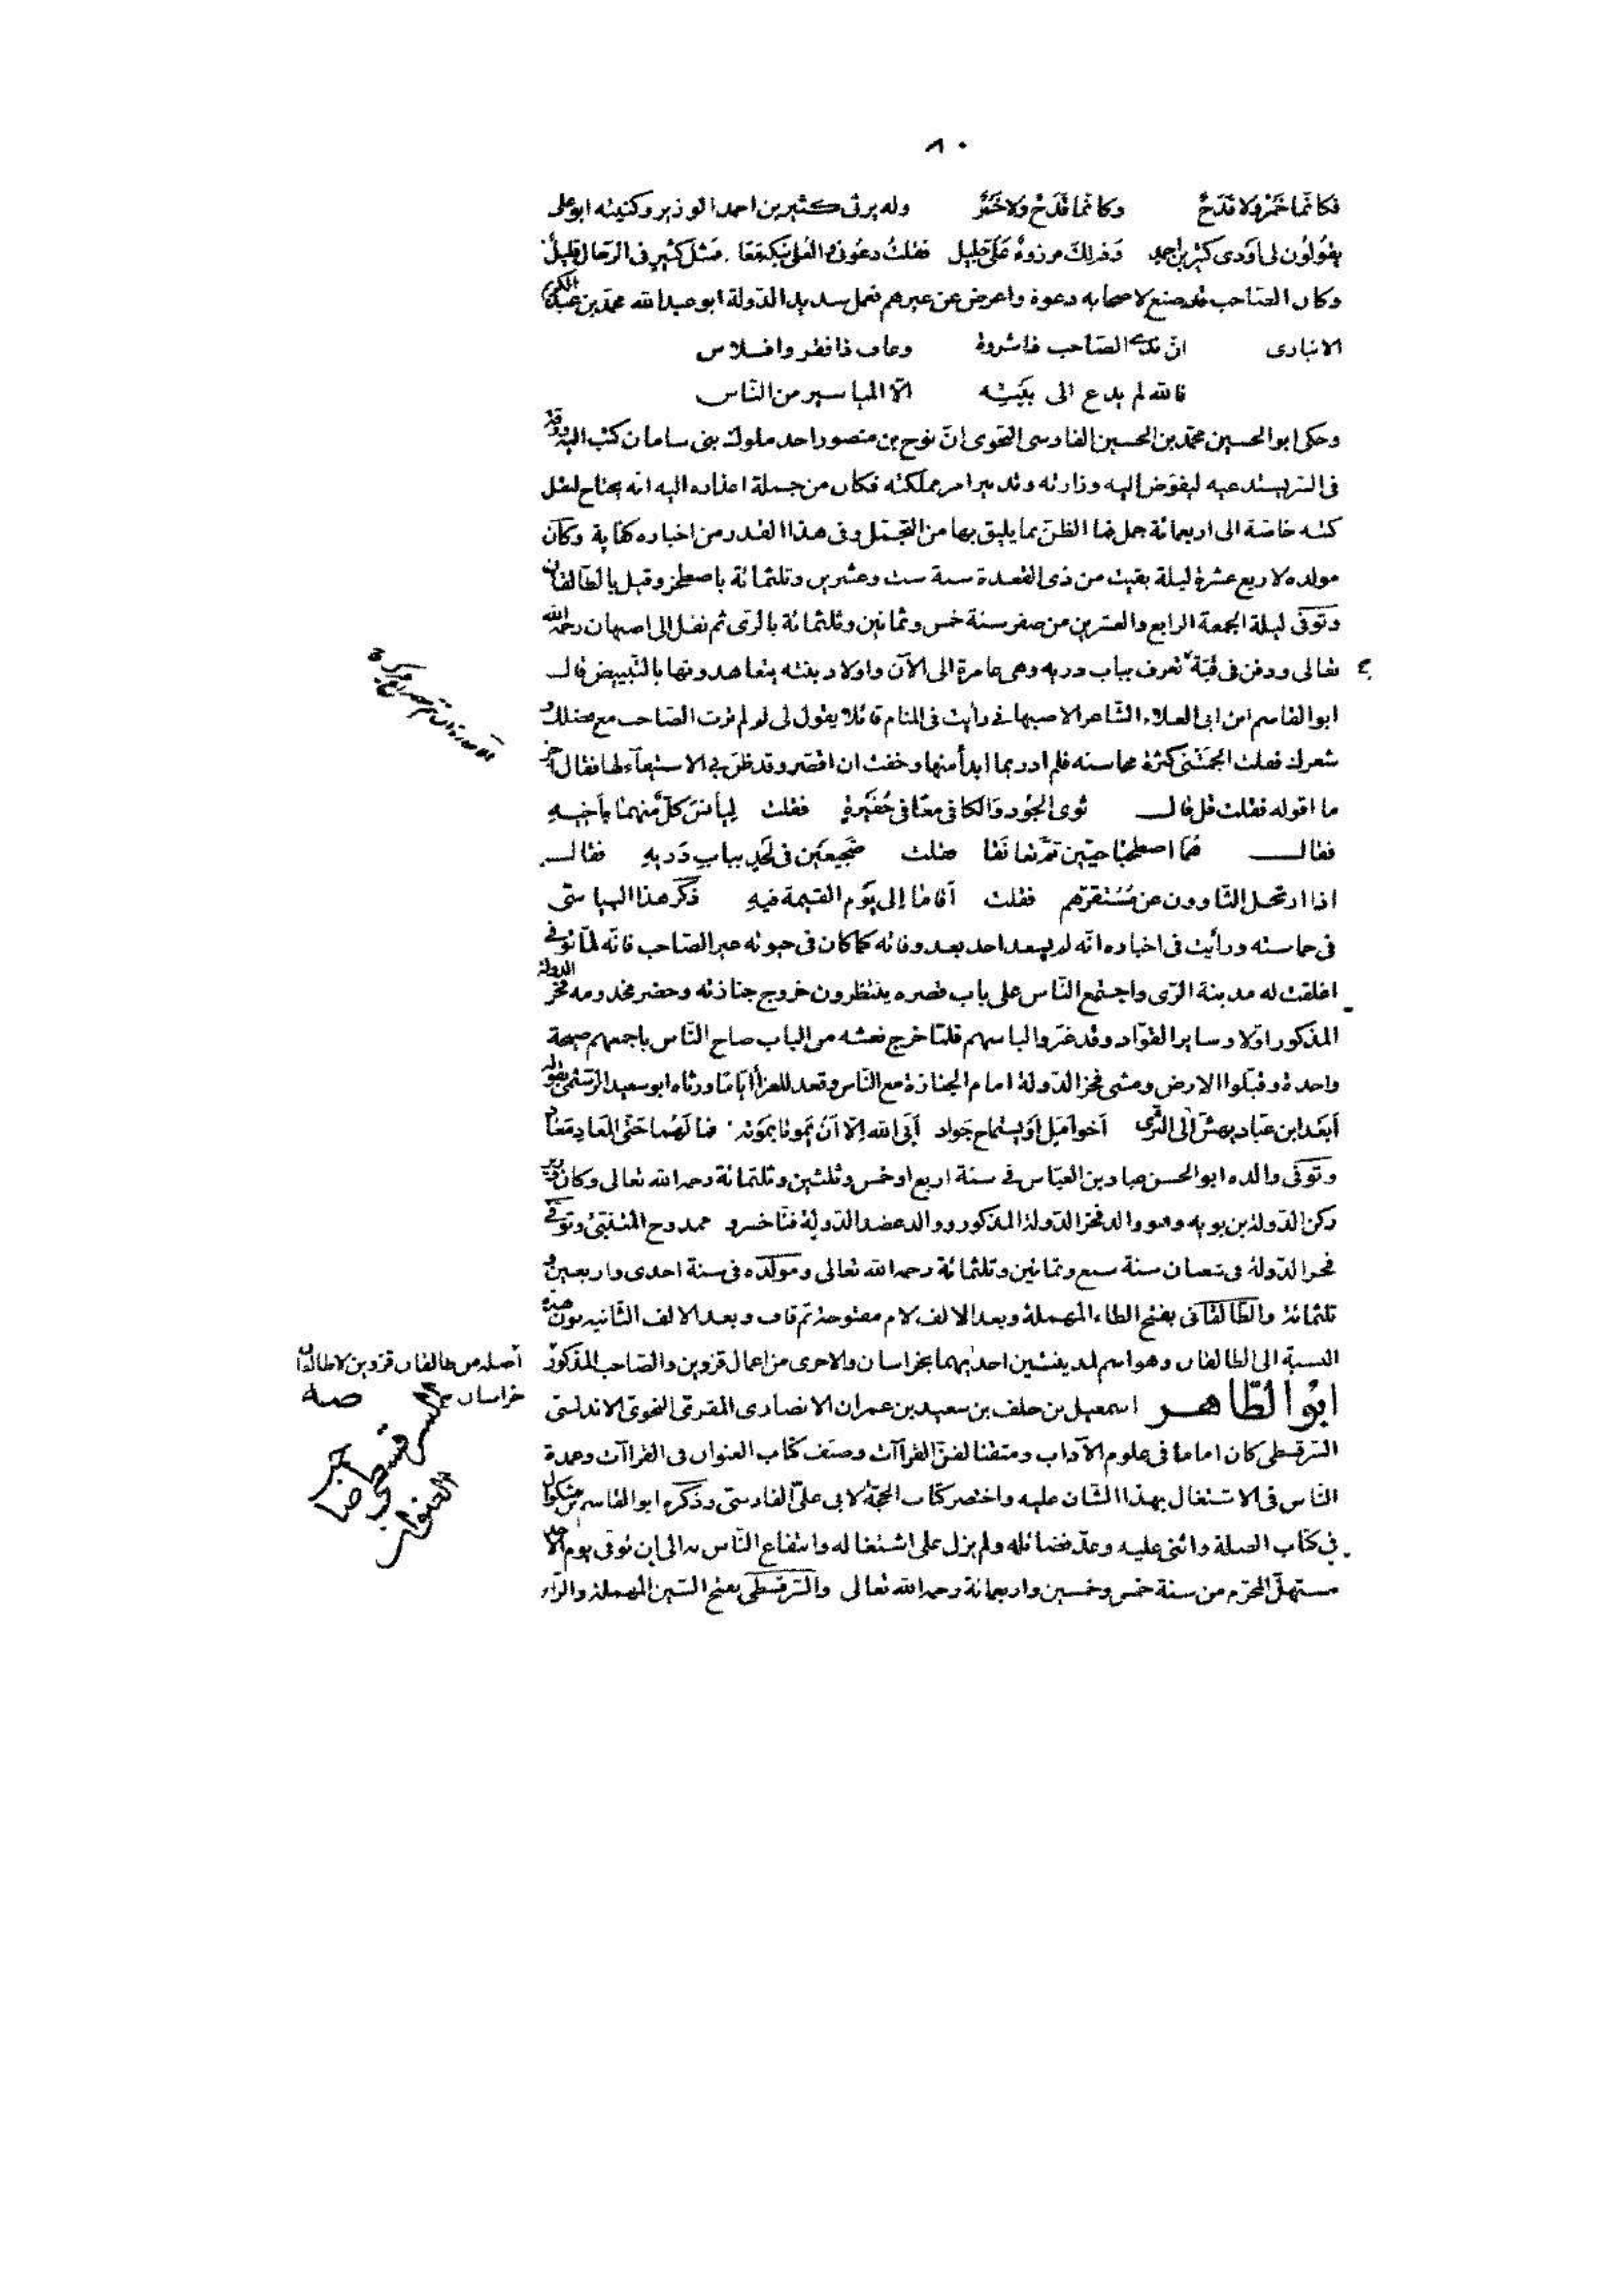 ٨٠
فكانما خمر ولا قدح وكانما قدح ولا خمر وله يرثى كثير بن احمد الوزير وكنيته ابو على
يقولون لى اودى كثير بن احمد وذلك مرزوء على جليل فقلت دعونى والعلى نبكه معا فمثل كثير فى الرجال قليل
وكان الصاحب قد صنع لاصحابه دعوة واعرض عن غيرهم فعمل سديد الدولة ابو عبد الله محمد بن عبد الكريم
الانبارى ان الصاحب ذا ثروة وعاف ذا فقر وافلاس
فالله لم يدع الى بيته الا المياسير من الناس
وحكى ابو الحسين محمد بن الحسين الفارسى النحوى ان نوح بن منصور احد ملوك بنى سامان كتب اليه ورقة
فى السر يستدعيه ليفوض اليه وزارته وتدبير امر مملكته فكان من جملة اعذاره اليه انه يحتاج لنقل
كتبه خاصة الى اربعمائة جمل فما الظن بما يليق بها من التجمل وفى هذا القدر من اخباره كفاية وكان
مولده لاربع عشرة ليلة بقيت من ذى القعدة سنة ست وعشرين وثلثمائة باصطخر وقيل بالطالقان
وتوفى ليلة الجمعة الرابع والعشرين من صفر سنة خمس وثمانين وثلثمائة بالرى ثم نقل الى اصبهان رحمه الله
تعالى ودفن فى قبة تعرف بباب دريه وهى عامرة الى الآن واولاد بنته يتعاهدونها بالتبييض قال
ابو القاسم ابن ابى العلاء الشاعر الاصبهانى رأيت فى المنام قائلا يقول لى لو لم ترث الصاحب مع فضلك و
شعرك فقلت الجمتنى كثرة محاسنه فلم ادر بما ابدأ منها وخفت ان اقصر وقد ظن بى الاستيعاء لها فقال اجز
ما اقوله فقلت قل قال ثوى الجود والكافى معا فى حفيرة فقلت ليأنس كل منهما بأخيه
فقال هما اصطحبا حيين ثم تعانقا فقلت ضجيعين فى لحد بباب دريه فقال
اذا ارتحل الثاوون عن مستقرهم فقلت أقاما إلى يوم القيمة فيه ذكر هذا البياسى
فى حماسته ورأيت فى اخباره انه لم يسعد احد بعد وفاته كما كان فى حيوته غير الصاحب فانه لما توفى
اغلقت له مدينة الرى واجتمع الناس على باب قصره ينتظرون خروج جنازته وحضر مخدومه فخر الدولة
المذكور اولا وساير القواد وقد غيروا لباسهم فلما خرج نعشه من الباب صاح الناس باجمعهم صيحة
واحدة وقبلوا الارض ومشى فخر الدولة امام الجنازة مع الناس وقعد للعزاء أياما ورثاه ابو سعيد الرستمى بقوله
أبعد ابن عباد يهش الى السرى أخو أمل أو يستماح جواد أبى الله إلا أن يموتا بموته فما لهما حتى المعاد معاد
وتوفى والده ابو الحسن عباد بن العباس فى سنة اربع او خمس وثلثين وثلثمائة رحمه الله تعالى وكان وزير
ركن الدولة بن بويه وهو والد فخر الدولة المذكور ووالد عضد الدولة فناخسرو ممدوح المتنبى وتوفى
فخر الدولة فى شعبان سنة سبع وثمانين وثلثمائة رحمه الله تعالى ومولده فى سنة احدى واربعين و
ثلثمائة والطالقانى بفتح الطاء المهملة وبعد الالف لام مفتوحة ثم قاف وبعد الالف الثانيه نون هذه
النسبة الى الطالقان وهو اسم لمدينتين احديهما بخراسان والاخرى من اعمال قزوين والصاحب المذكور
أصله من طالقان قزوين لا طالقان
خراسان صه
ابو الطاهر اسمعيل بن خلف بن سعيد بن عمران الانصارى المقرى النحوى الاندلسى
السرقسطى كان اماما فى علوم الآداب ومتقنا لفن القراآت وصنف كتاب العنوان فى القراآت وعمدة
الناس فى الاشتغال بهذا الشان عليه واختصر كتاب الحجة لابى على الفارسى وذكره ابو القاسم بن بشكوال
فى كتاب الصلة واثنى عليه وعد فضائله ولم يزل على اشتغاله وانتفاع الناس به الى ان توفى يوم الاحد
مستهل المحرم من سنة خمس وخمسين واربعمائة رحمه الله تعالى والسرقسطى بفتح السين المهملة والراء
السرقسطى
صاحب
العنوان